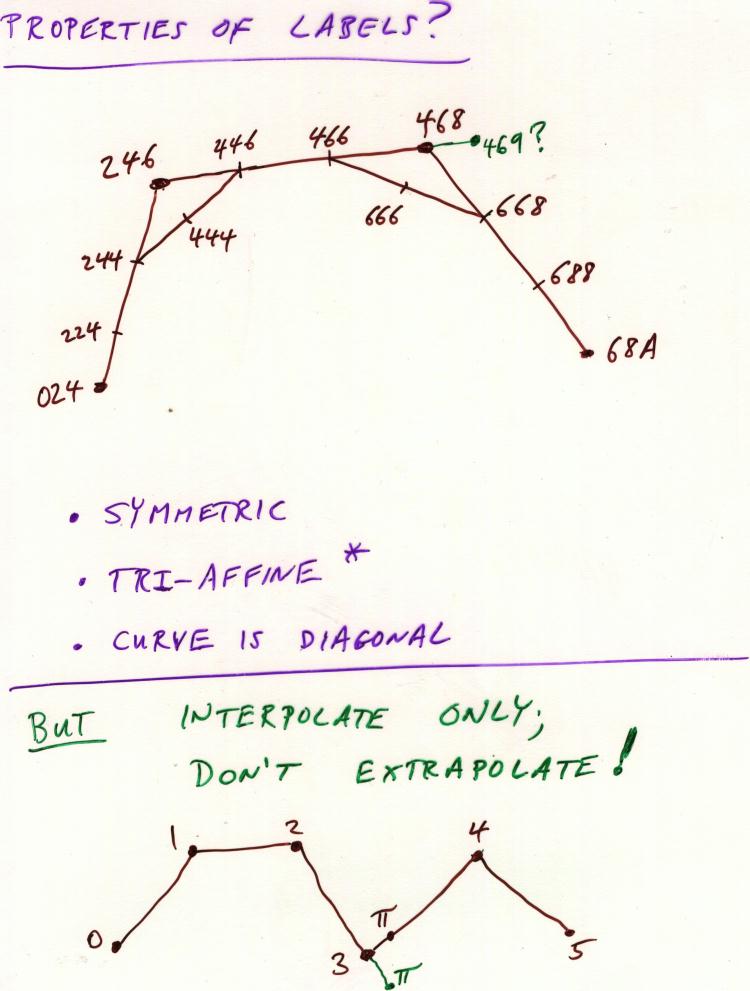 PROPERTIES OF LABELS?
246 446 466 468 469?
244 444 666 668
688
224
024 68A
• SYMMETRIC
• TRI-AFFINE *
• CURVE IS DIAGONAL
BUT INTERPOLATE ONLY;
DON'T EXTRAPOLATE!
1 2 4
0 π 5
3 π